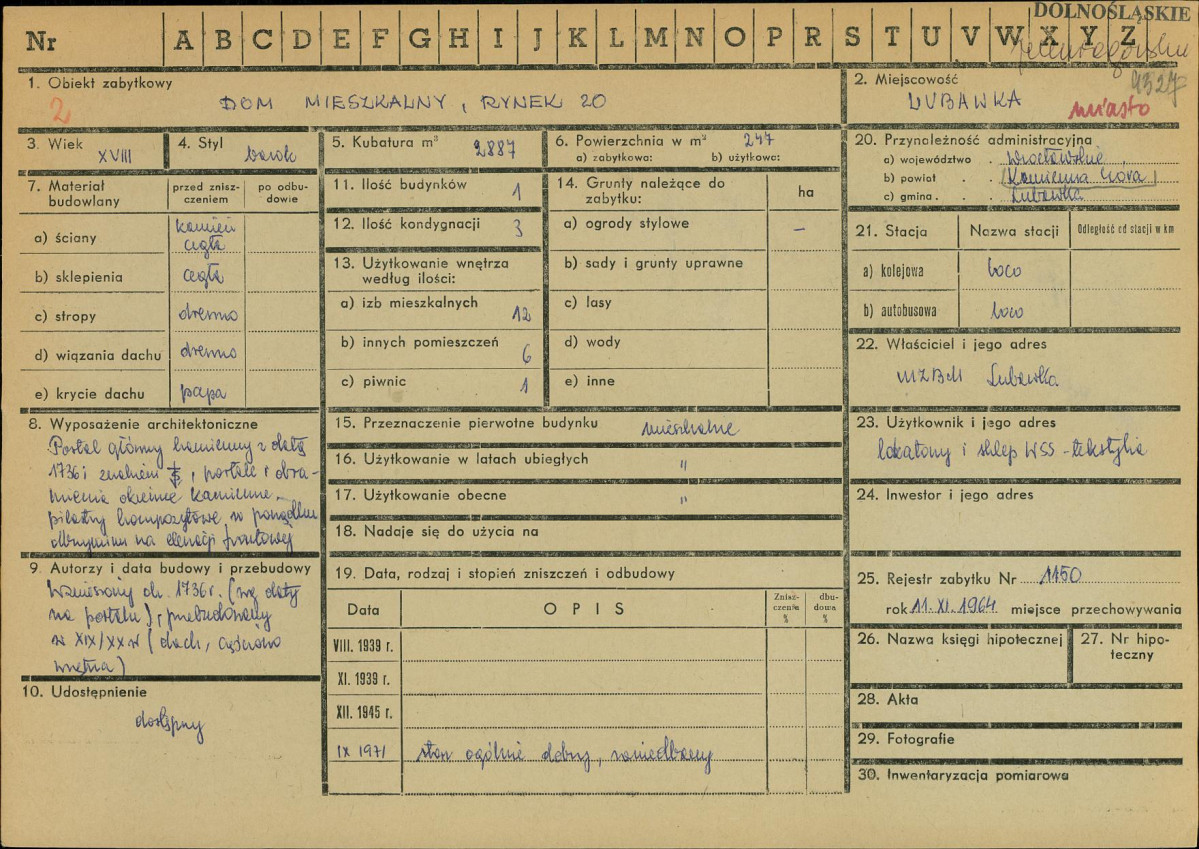 DOLNOŚLĄSKIE
Nr A B C D E F G H I J K L M N O P R S T U V W X Y Z
1. Obiekt zabytkowy
2
DOM MIESZKALNY, RYNEK 20
2. Miejscowość
LUBAWKA
miasto
3. Wiek
XVIII
4. Styl
barok
5. Kubatura m³
2887
6. Powierzchnia w m²
247
a) zabytkowa: b) użytkowe:
7. Materiał budowlany
przed zniszczeniem
po odbudowie
a) ściany
kamień
cegła
b) sklepienia
cegła
c) stropy
drewno
d) wiązania dachu
drewno
e) krycie dachu
papa
8. Wyposażenie architektoniczne
Portal główny kamienny z datą
1736 i znakiem , portale i obra-
mienia okienne kamienne,
pilastry kompozytowe w porządku
olbrzymim na elewacji frontowej
9. Autorzy i data budowy i przebudowy
Wzniesiony ok. 1736 r. (wg daty
na portalu), przebudowany
w XIX/XX w (dach, częściowo
wnętrza)
10. Udostępnienie
dostępny
11. Ilość budynków
1
12. Ilość kondygnacji
3
13. Użytkowanie wnętrza
według ilości:
a) izb mieszkalnych
12
b) innych pomieszczeń
6
c) piwnic
1
14. Grunty należące do
zabytku:
ha
a) ogrody stylowe
–
b) sady i grunty uprawne
c) lasy
d) wody
e) inne
15. Przeznaczenie pierwotne budynku
mieszkalne
16. Użytkowanie w latach ubiegłych
"
17. Użytkowanie obecne
"
18. Nadaje się do użycia na
19. Data, rodzaj i stopień zniszczeń i odbudowy
Data
OPIS
Zniszczenia
%
dbudowa
%
VIII. 1939 r.
XI. 1939 r.
XII. 1945 r.
IX 1971
stan ogólnie dobry, zaniedbany
20. Przynależność administracyjna
a) województwo . wrocławskie
b) powiat . . Kamienna Góra
c) gmina . . . Lubawka
21. Stacja
Nazwa stacji
Odległość od stacji w km
a) kolejowa
loco
b) autobusowa
loco
22. Właściciel i jego adres
MZBM Lubawka
23. Użytkownik i jego adres
lokatorzy i sklep WSS - tekstylia
24. Inwestor i jego adres
25. Rejestr zabytku Nr 1150
rok 11. XI. 1964 miejsce przechowywania
26. Nazwa księgi hipotecznej
27. Nr hipo-
teczny
28. Akta
29. Fotografie
30. Inwentaryzacja pomiarowa